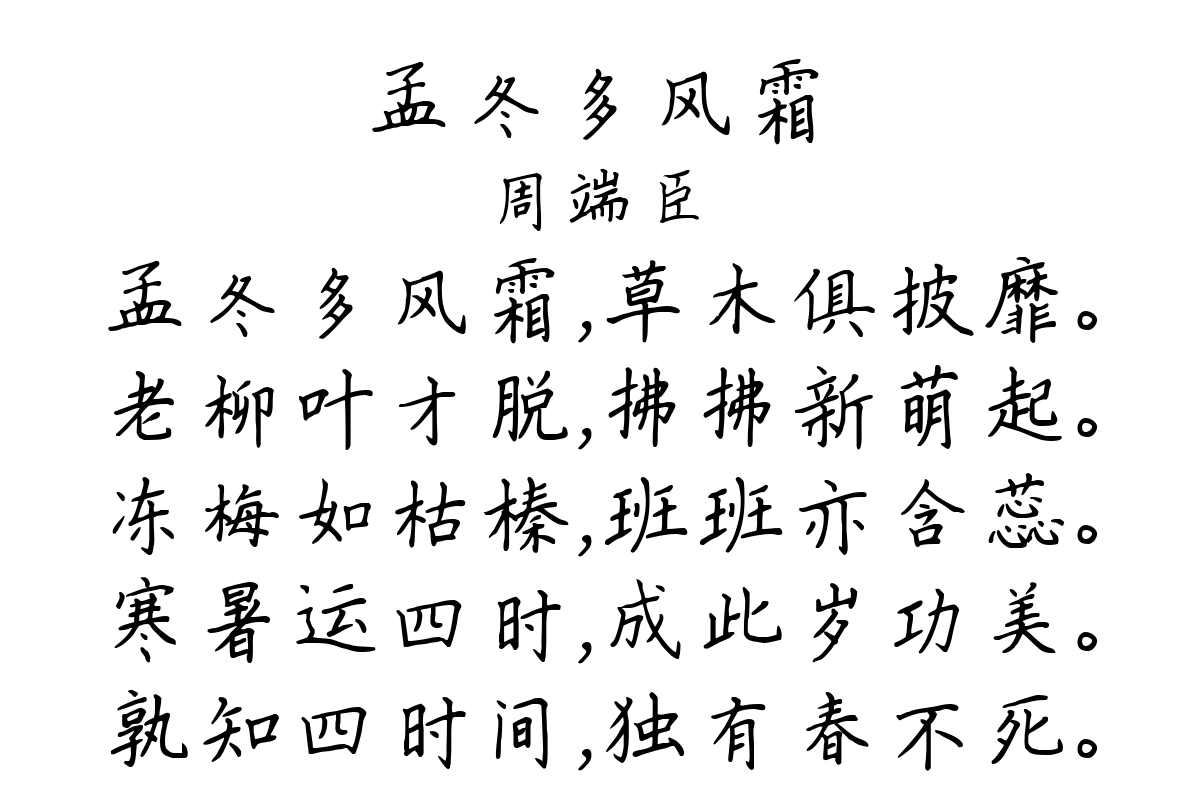 孟冬多风霜
周端臣
孟冬多风霜,草木俱披靡。
老柳叶才脱,拂拂新萌起。
冻梅如枯榛,班班亦含蕊。
寒暑运四时,成此岁功美。
孰知四时间,独有春不死。